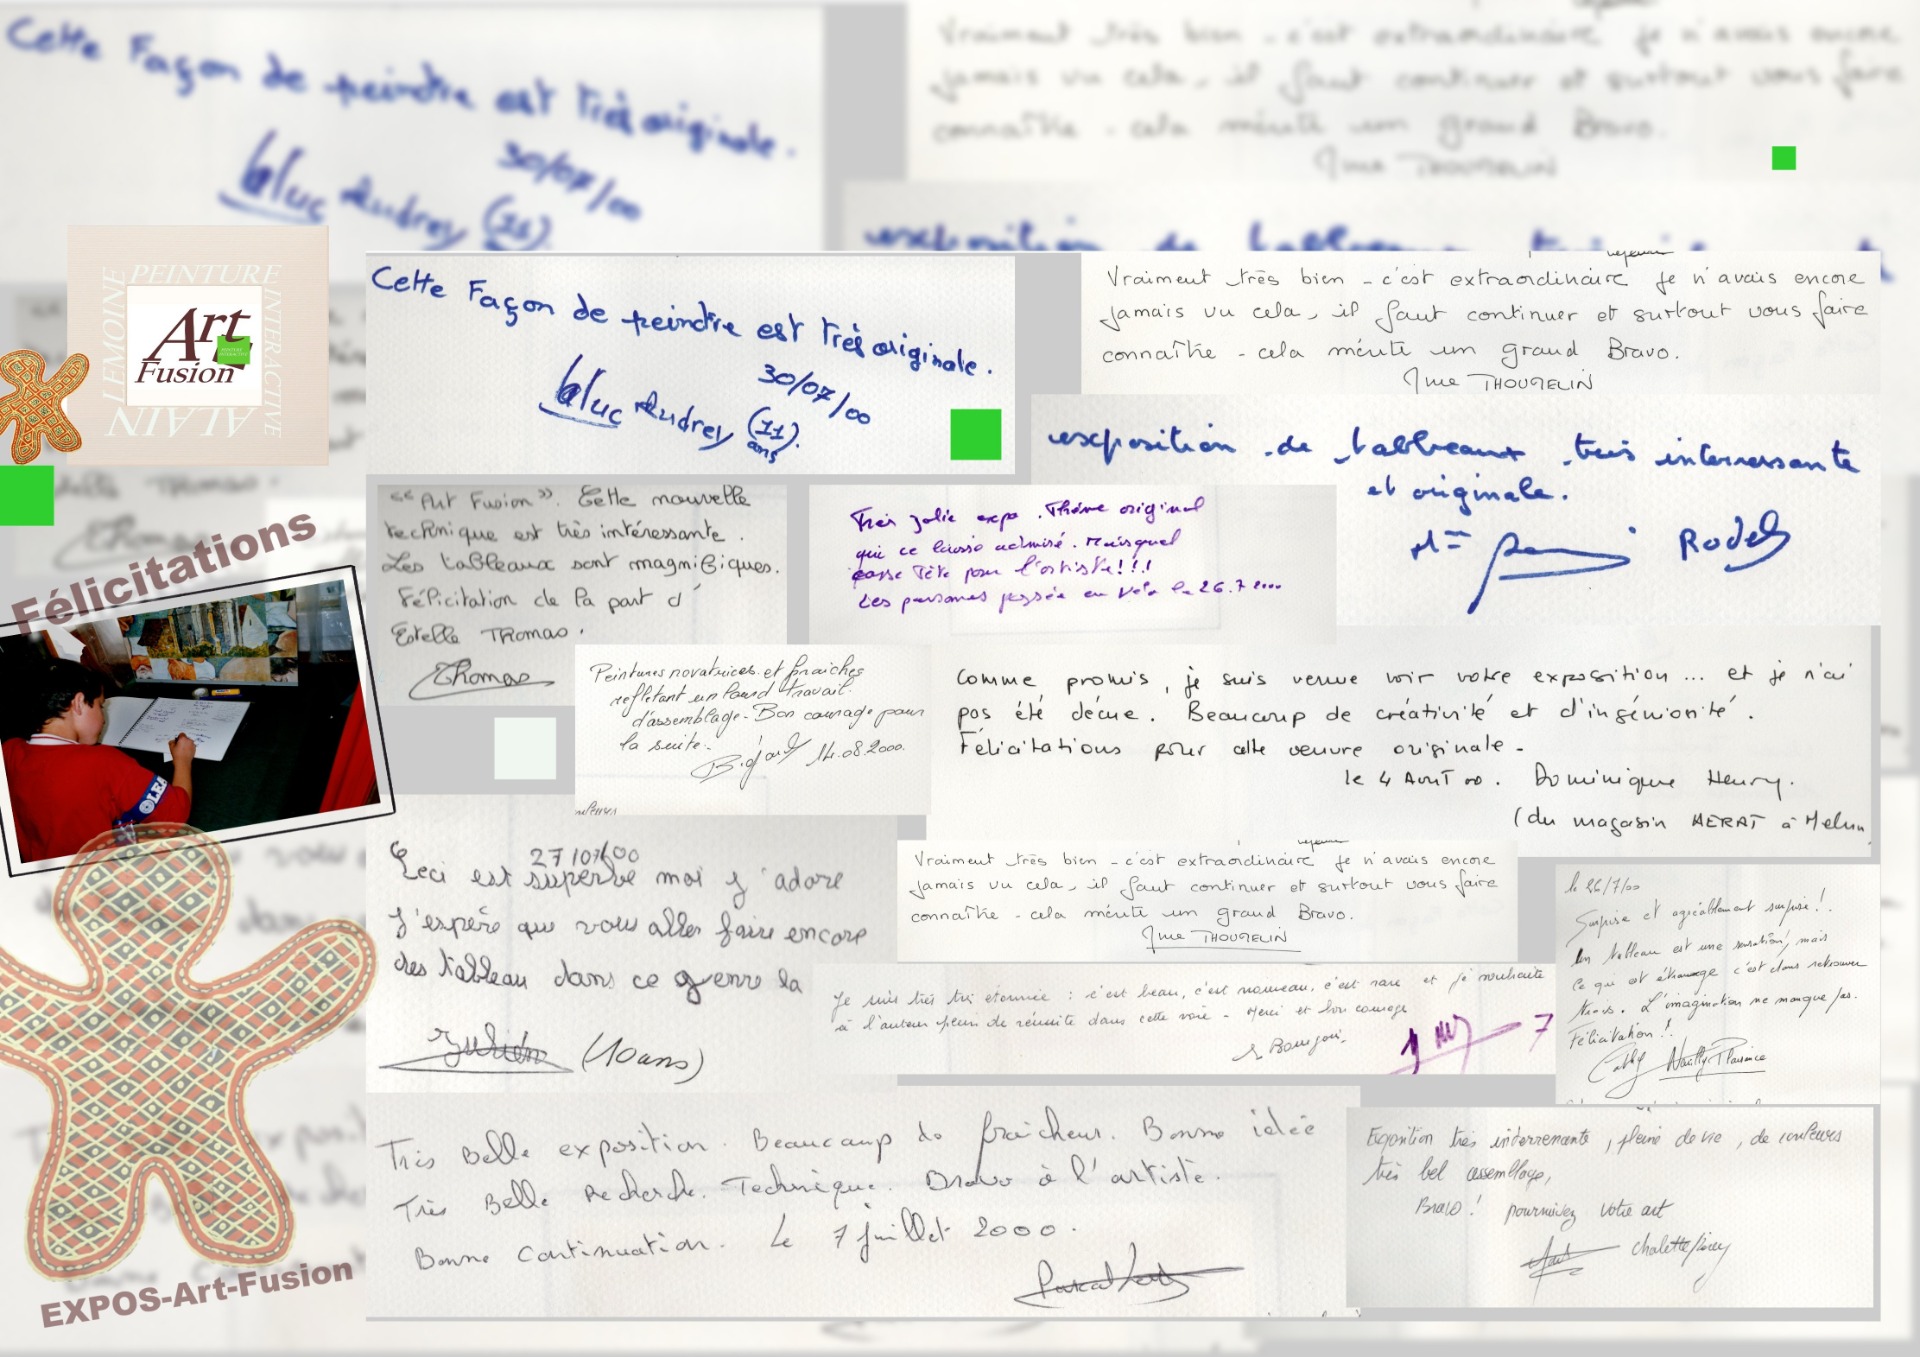 Cette Façon de peindre est très originale.
30/07/00
bluc Audrey (11).
Vraiment très bien - c'est extraordinaire je n'avais encore
jamais vu cela, il faut continuer et surtout vous faire
connaître - cela mérite un grand Bravo.
Mme THOUGELIN
exposition de tableaux
PEINTURE
INTERACTIVE
ALAIN
LEMOINE
Art
Fusion
Félicitations
EXPOS-Art-Fusion
Cette Façon de peindre est très originale.
30/07/00
bluc Audrey (11).
ans
Vraiment très bien - c'est extraordinaire je n'avais encore
jamais vu cela, il faut continuer et surtout vous faire
connaître - cela mérite un grand Bravo.
Mme THOUGELIN
exposition de tableaux très interressante
et originale.
Rodel
"Art Fusion". Cette nouvelle
technique est très intéressante.
Les tableaux sont magnifiques.
Félicitation de la part d'
Estelle THomas.
Thomas
Très jolie expo. Thème original
qui ce laisse admiré. Mais quel
casse Tête pour l'artiste!!!
Des personnes passée en vélo le 26.7.2000
Peintures novatrices et fraiches
reflétant un lourd travail
d'assemblage - Bon courage pour
la suite.
14.08.2000.
Comme promis, je suis venue voir votre exposition... et je n'ai
pas été déçue. Beaucoup de créativité et d'ingéniosité.
Félicitations pour cette oeuvre originale -
le 4 Août 00. Dominique Henry.
(du magasin HERAT à Melun
27/07/00
Ceci est superbe moi j'adore
J'espère que vous aller faire encore
des tableau dans ce genre la
Julien (10ans)
Vraiment très bien - c'est extraordinaire je n'avais encore
jamais vu cela, il faut continuer et surtout vous faire
connaître - cela mérite un grand Bravo.
Mme THOUGELIN
Je suis très très étonnée : c'est beau, c'est nouveau, c'est rare et je souhaite
à l'auteur plein de réussite dans cette voie - Merci et bon courage
le 26/7/00
Surprise et agréablement surprise!.
Un tableau est une sensation, mais
ce qui est étrange c'est dans retrouver
trois. L'imagination ne manque pas.
Félicitation!.
Très Belle exposition. Beaucoup de fraîcheur. Bonne idée
Très Belle Recherche. Technique. Bravo à l'artiste.
Bonne Continuation. Le 7 juillet 2000.
Exposition très interressante, pleine de vie, de couleurs
très bel assemblage,
Bravo! poursuivez votre art